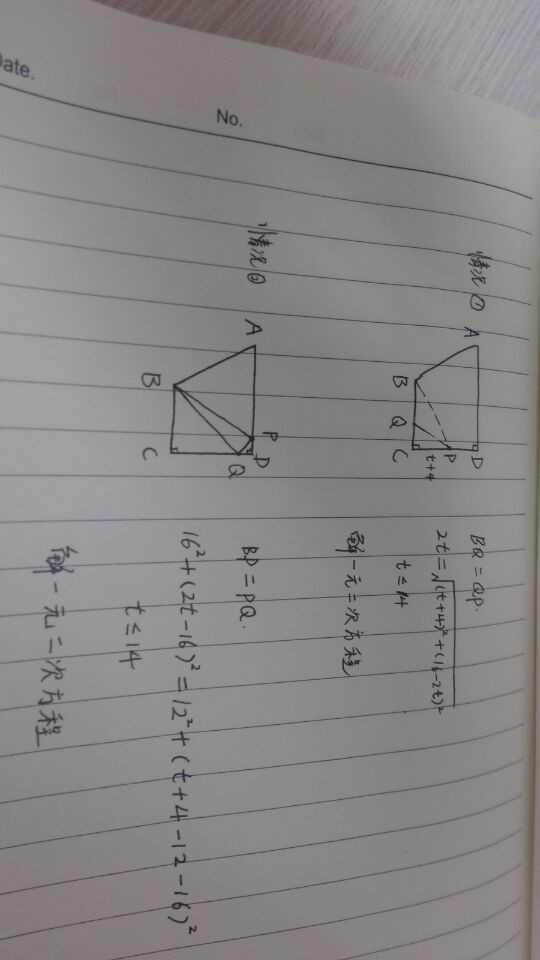 Date.
No.
情况①
A
D
B
Q
C
P
t+4
BQ=QP.
2t=√(t+4)²+(16-2t)²
t≤14
解一元二次方程
情况②
A
P
D
B
C
Q
BP=PQ.
16²+(2t-16)²=12²+(t+4-12-16)²
t≤14
解一元二次方程